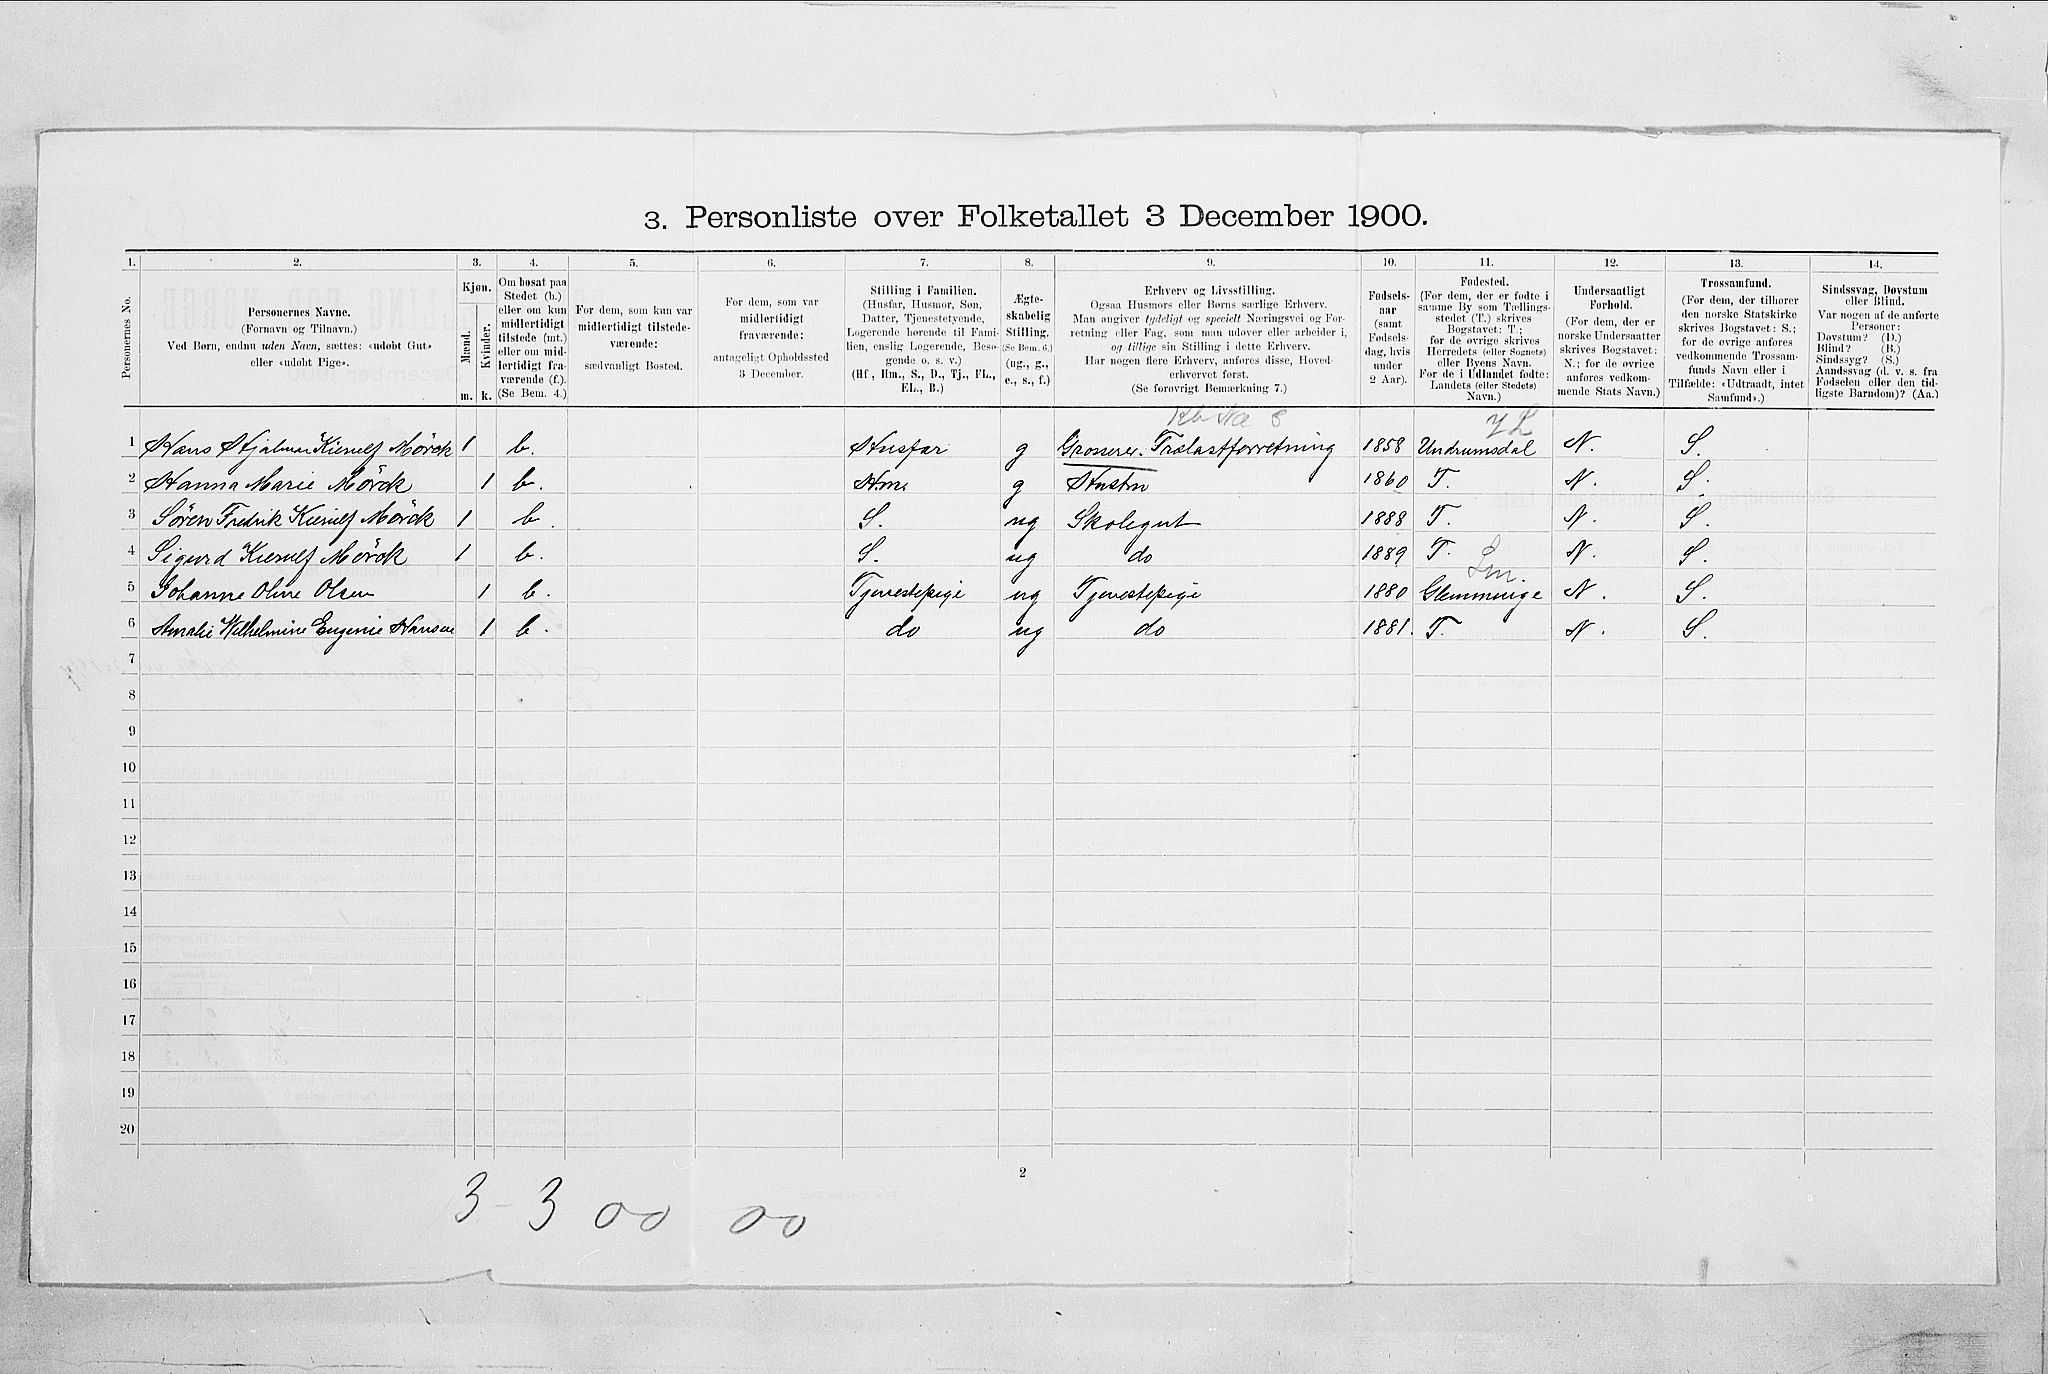 3. Personliste over Folketallet 3 December 1900.
1. 2. 3. 4. 5. 6. 7. 8. 9. 10. 11. 12. 13. 14.
Personernes No.
Personernes Navne.
(Fornavn og Tilnavn.)
Ved Børn, endnu uden Navn, sættes: «udøbt Gut»
eller «udøbt Pige».
Kjøn.
Mænd.
Kvinder.
m. k.
Om bosat paa
Stedet (b.)
eller om kun
midlertidigt
tilstede (mt.)
eller om mid-
lertidigt fra-
værende (f.).
(Se Bem. 4.)
For dem, som kun var
midlertidigt tilstede-
værende:
sædvanligt Bosted.
For dem, som var
midlertidigt
fraværende:
antageligt Opholdssted
3 December.
Stilling i Familien.
(Husfar, Husmor, Søn,
Datter, Tjenestetyende,
Logerende hørende til Fami-
lien, enslig Logerende, Besø-
gende o. s. v.)
(Hf., Hm., S., D., Tj., FL.,
EL., B.)
Ægte-
skabelig
Stilling.
(Se Bem. 6.)
(ug., g.,
e., s., f.)
Erhverv og Livsstilling.
Ogsaa Husmors eller Børns særlige Erhverv.
Man angiver tydeligt og specielt Næringsvei og For-
retning eller Fag, som man udøver eller arbeider i,
og tillige sin Stilling i dette Erhverv.
Har nogen flere Erhverv, anføres disse, Hoved-
erhvervet først.
(Se forøvrigt Bemærkning 7.)
Fødsels-
aar
(samt
Fødsels-
dag, hvis
under
2 Aar).
Fødested.
(For dem, der er fødte i
samme By som Tællings-
stedet (T.) skrives
Bogstavet: T.;
for de øvrige skrives
Herredets (eller Sognets)
eller Byens Navn.
For de i Udlandet fødte:
Landets (eller Stedets)
Navn.)
Undersaatligt
Forhold.
(For dem, der er
norske Undersaatter
skrives Bogstavet:
N.; for de øvrige
anføres vedkom-
mende Stats Navn.)
Trossamfund.
(For dem, der tilhører
den norske Statskirke
skrives Bogstavet: S.;
for de øvrige anføres
vedkommende Trossam-
funds Navn eller i
Tilfælde: «Udtraadt, intet
Samfund».)
Sindssvag, Døvstum
eller Blind.
Var nogen af de anførte
Personer:
Døvstum? (D.)
Blind? (B.)
Sindssyg? (S.)
Aandssvag (d. v. s. fra
Fødselen eller den tid-
ligste Barndom)? (Aa.)
1 Hans Hjalmar Kierulf Mörck 1 b. Husfar g Grosserer. Trælastforretning 1858 Undrumsdal N. S.
2 Hanna Marie Mörck 1 b. Hm. g Hustru 1860 T. N. S.
3 Sören Fredrik Kierulf Mörck 1 b. S. ug Skolegut 1888 T. N. S.
4 Sigurd Kierulf Mörck 1 b. S. ug do 1889 T. N. S.
5 Johanne Oline Olsen 1 b. Tjenestepige ug Tjenestepige 1880 Glemminge N. S.
6 Amalie Wilhelmine Eugenie Hansen 1 b. do ug do 1881. T. N. S.
7
8
9
10
11
12
13
14
15
16
17
18
19
20
2
3 - 3 00 00